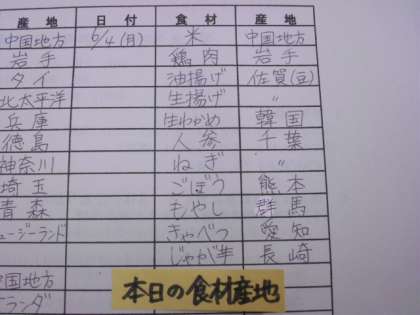 産地 日付 食材 産地
中国地方 6/4(月) 米 中国地方
岩手 鶏肉 岩手
タイ 油揚げ 佐賀(豆)
北太平洋 生揚げ 〃
兵庫 生わかめ 韓国
徳島 人参 千葉
神奈川 ねぎ 〃
埼玉 ごぼう 熊本
青森 もやし 群馬
ュージーランド きゃべつ 愛知
じゃが芋 長崎
中国地方
ランダ
本日の食材産地